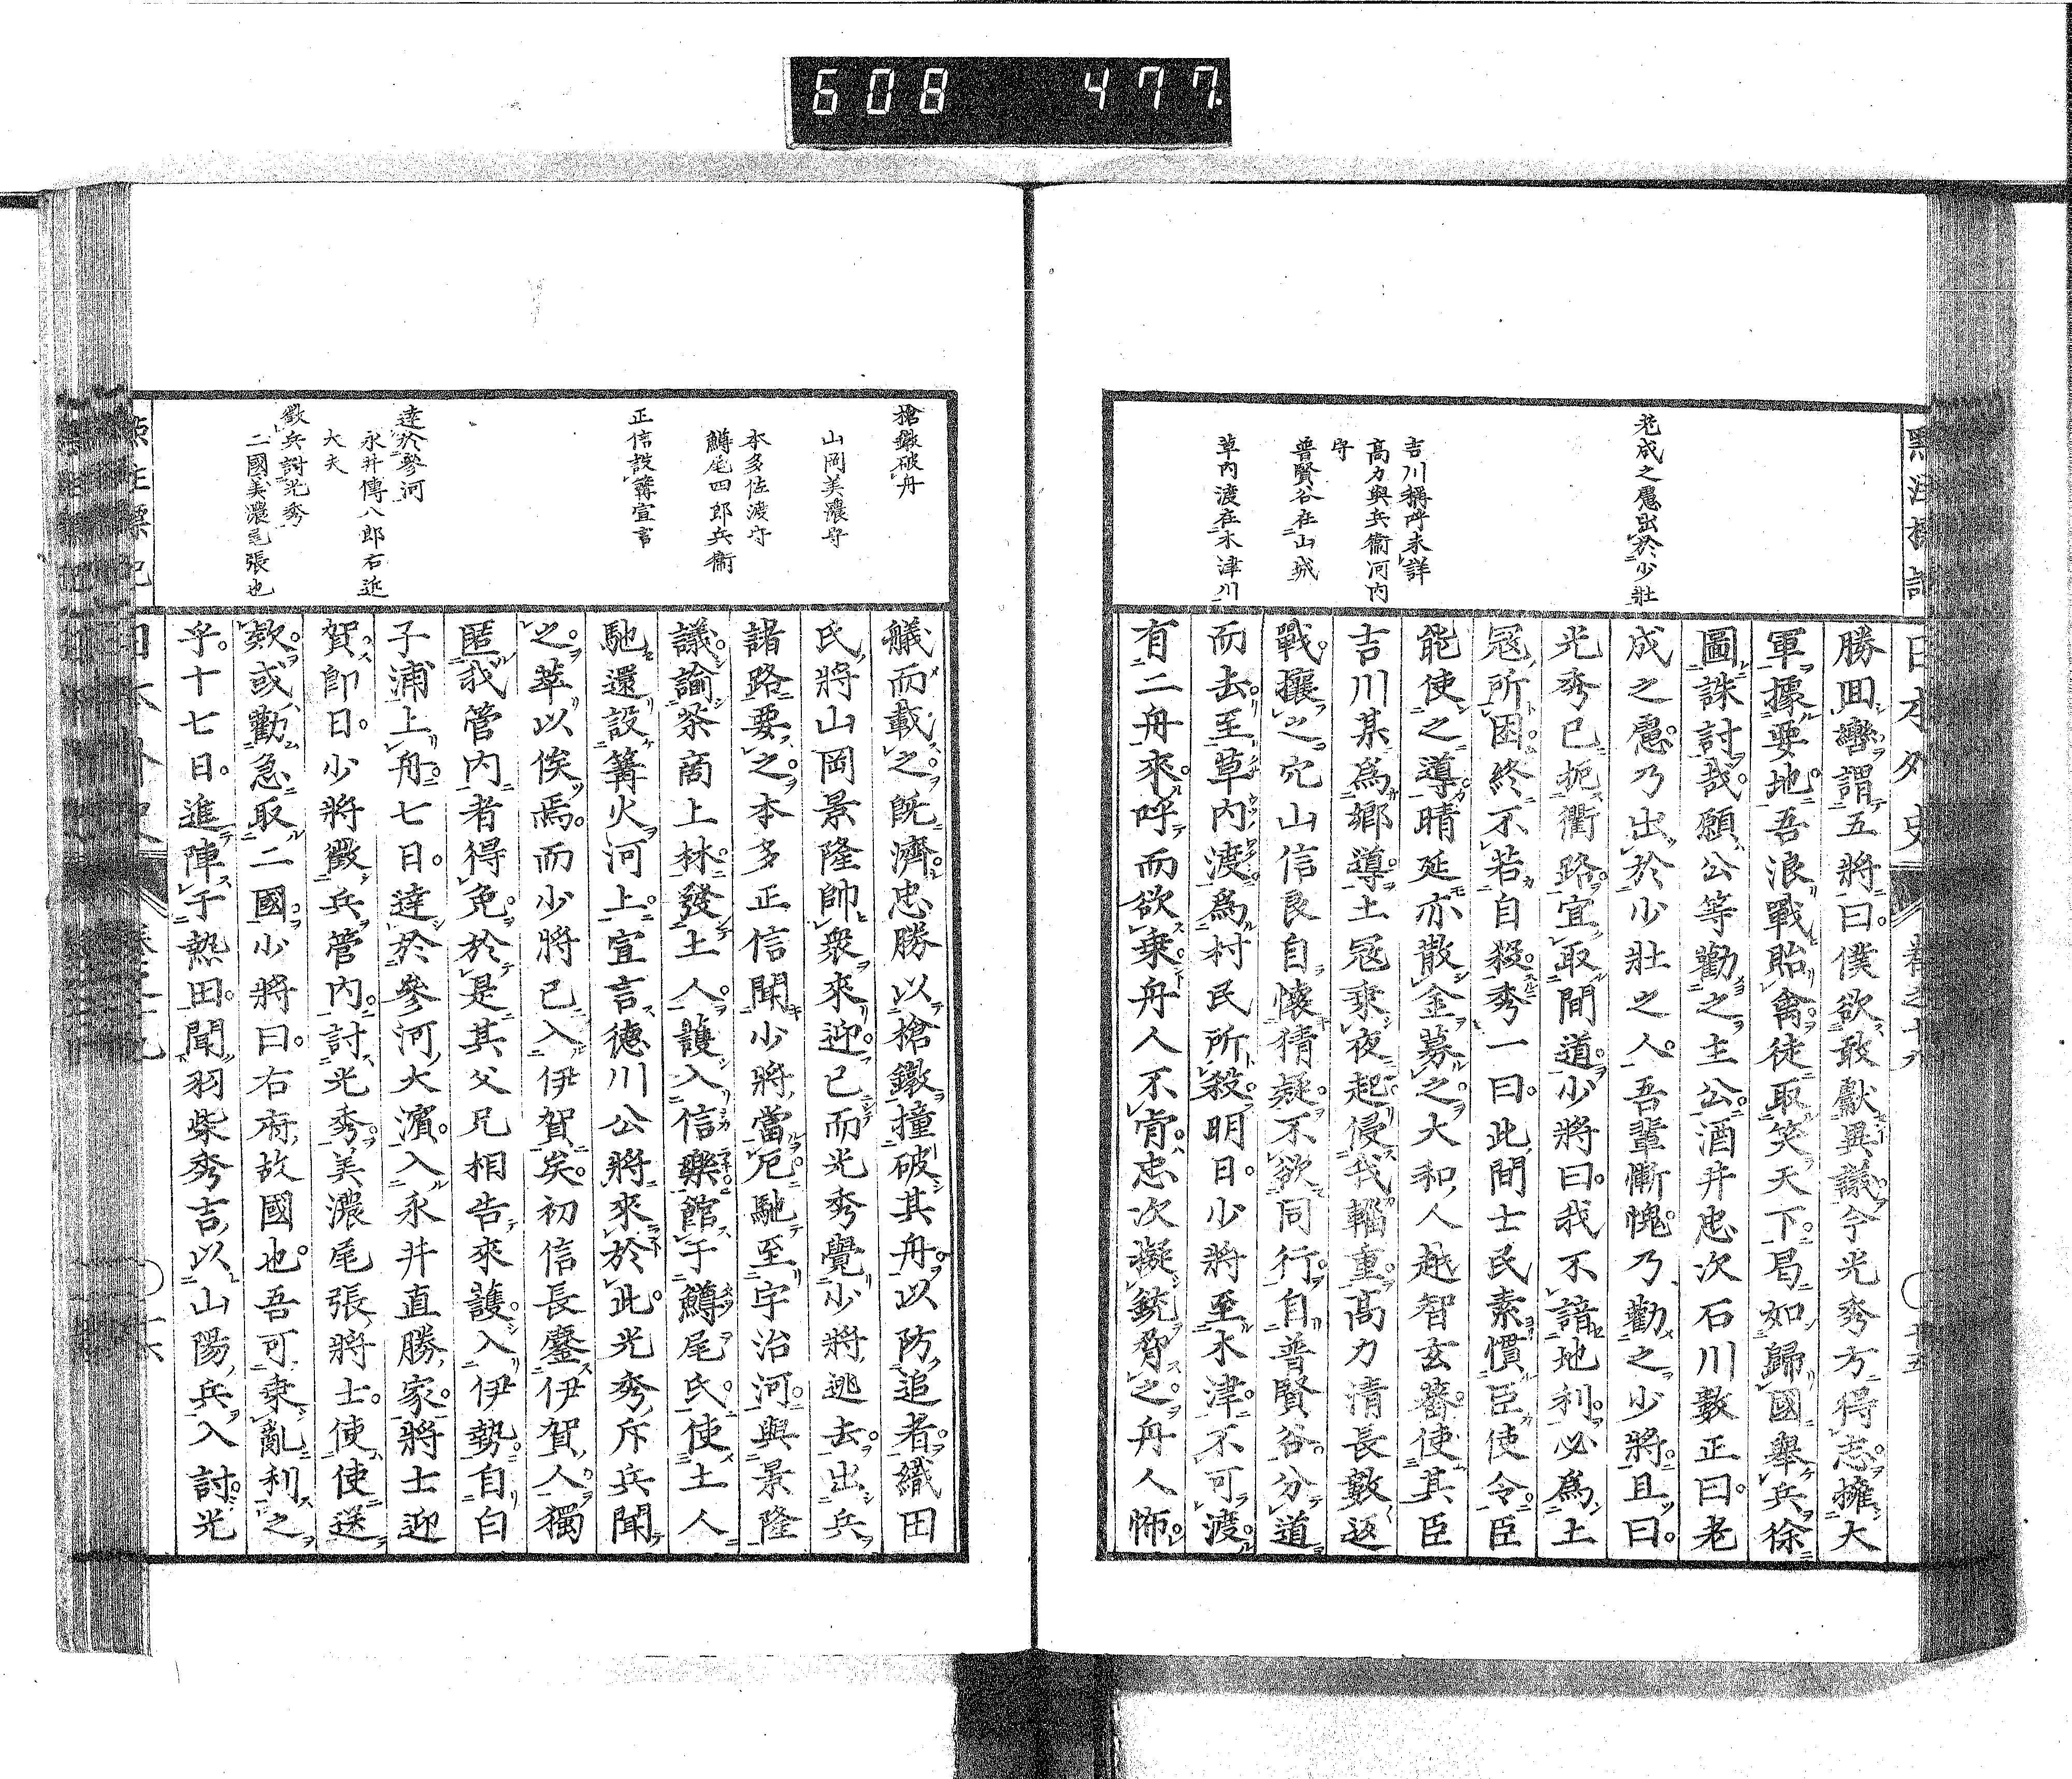 608 477
日本外史
老成之慮出於少壯
吉川稱呼未詳
高力與兵衞河内
守
普賢谷在山城
草内渡在木津川
勝回轡謂五將曰僕欲敢獻異議今光秀方得志擁大
軍據要地吾浪戰貽禽徒取笑天下曷如歸國舉兵徐
圖誅討哉願公等勸之主公酒井忠次石川數正曰老
成之慮乃出於少壯之人吾輩慚愧乃勸之少將且曰
光秀已扼衢路宜取間道少將曰我不諳地利必爲土
寇所困終不若自殺秀一曰此間士民素慣臣使令臣
能使之導晴延亦散金募之大和人越智玄蕃使其臣
吉川某爲鄉導土寇乘夜起侵我輜重高力清長數返
戰攘之穴山信良自懷猜疑不欲同行自普賢谷分道
而去至草内渡爲村民所殺明日少將至木津不可渡
有二舟來呼而欲乘舟人不肯忠次擬銃脅之舟人怖
槍鐓破舟
山岡美濃守
本多佐渡守
鱒尾四郎兵衞
正信設篝宣言
達於參河
永井傳八郎右近
大夫
徵兵討光秀
二國美濃尾張也
艤而載之既濟忠勝以槍鐓撞破其舟以防追者織田
氏將山岡景隆帥衆來迎已而光秀覺少將逃去出兵
諸路要之本多正信聞少將當厄馳至宇治河與景隆
議諭茶商上林發土人護入信樂館于鱒尾氏使土人
馳還設篝火河上宣言德川公將來於此光秀斥兵聞
之萃以俟焉而少將已入伊賀矣初信長鏖伊賀人獨
匿我管内者得免於是其父兄相告來護入伊勢自白
子浦上舟七日達於參河大濱入永井直勝家將士迎
賀即日少將徵兵管内討光秀美濃尾張將士使使送
欵或勸急取二國少將曰右府故國也吾可乘亂利之
乎十七日進陣于熱田聞羽柴秀吉以山陽兵入討光